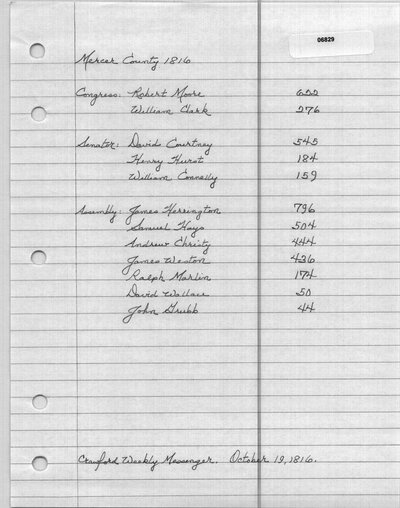 06829
Mercer County 1816
Congress: Robert Moore 622
William Clark 276
Senator: David Courtney 545
Henry Hurst 184
William Connelly 159
Assembly: James Herrington 796
Samuel Hays 504
Andrew Christy 444
James Weston 436
Ralph Marlin 174
David Wallace 50
John Grubb 44
Crawford Weekly Messenger. October 19, 1816.